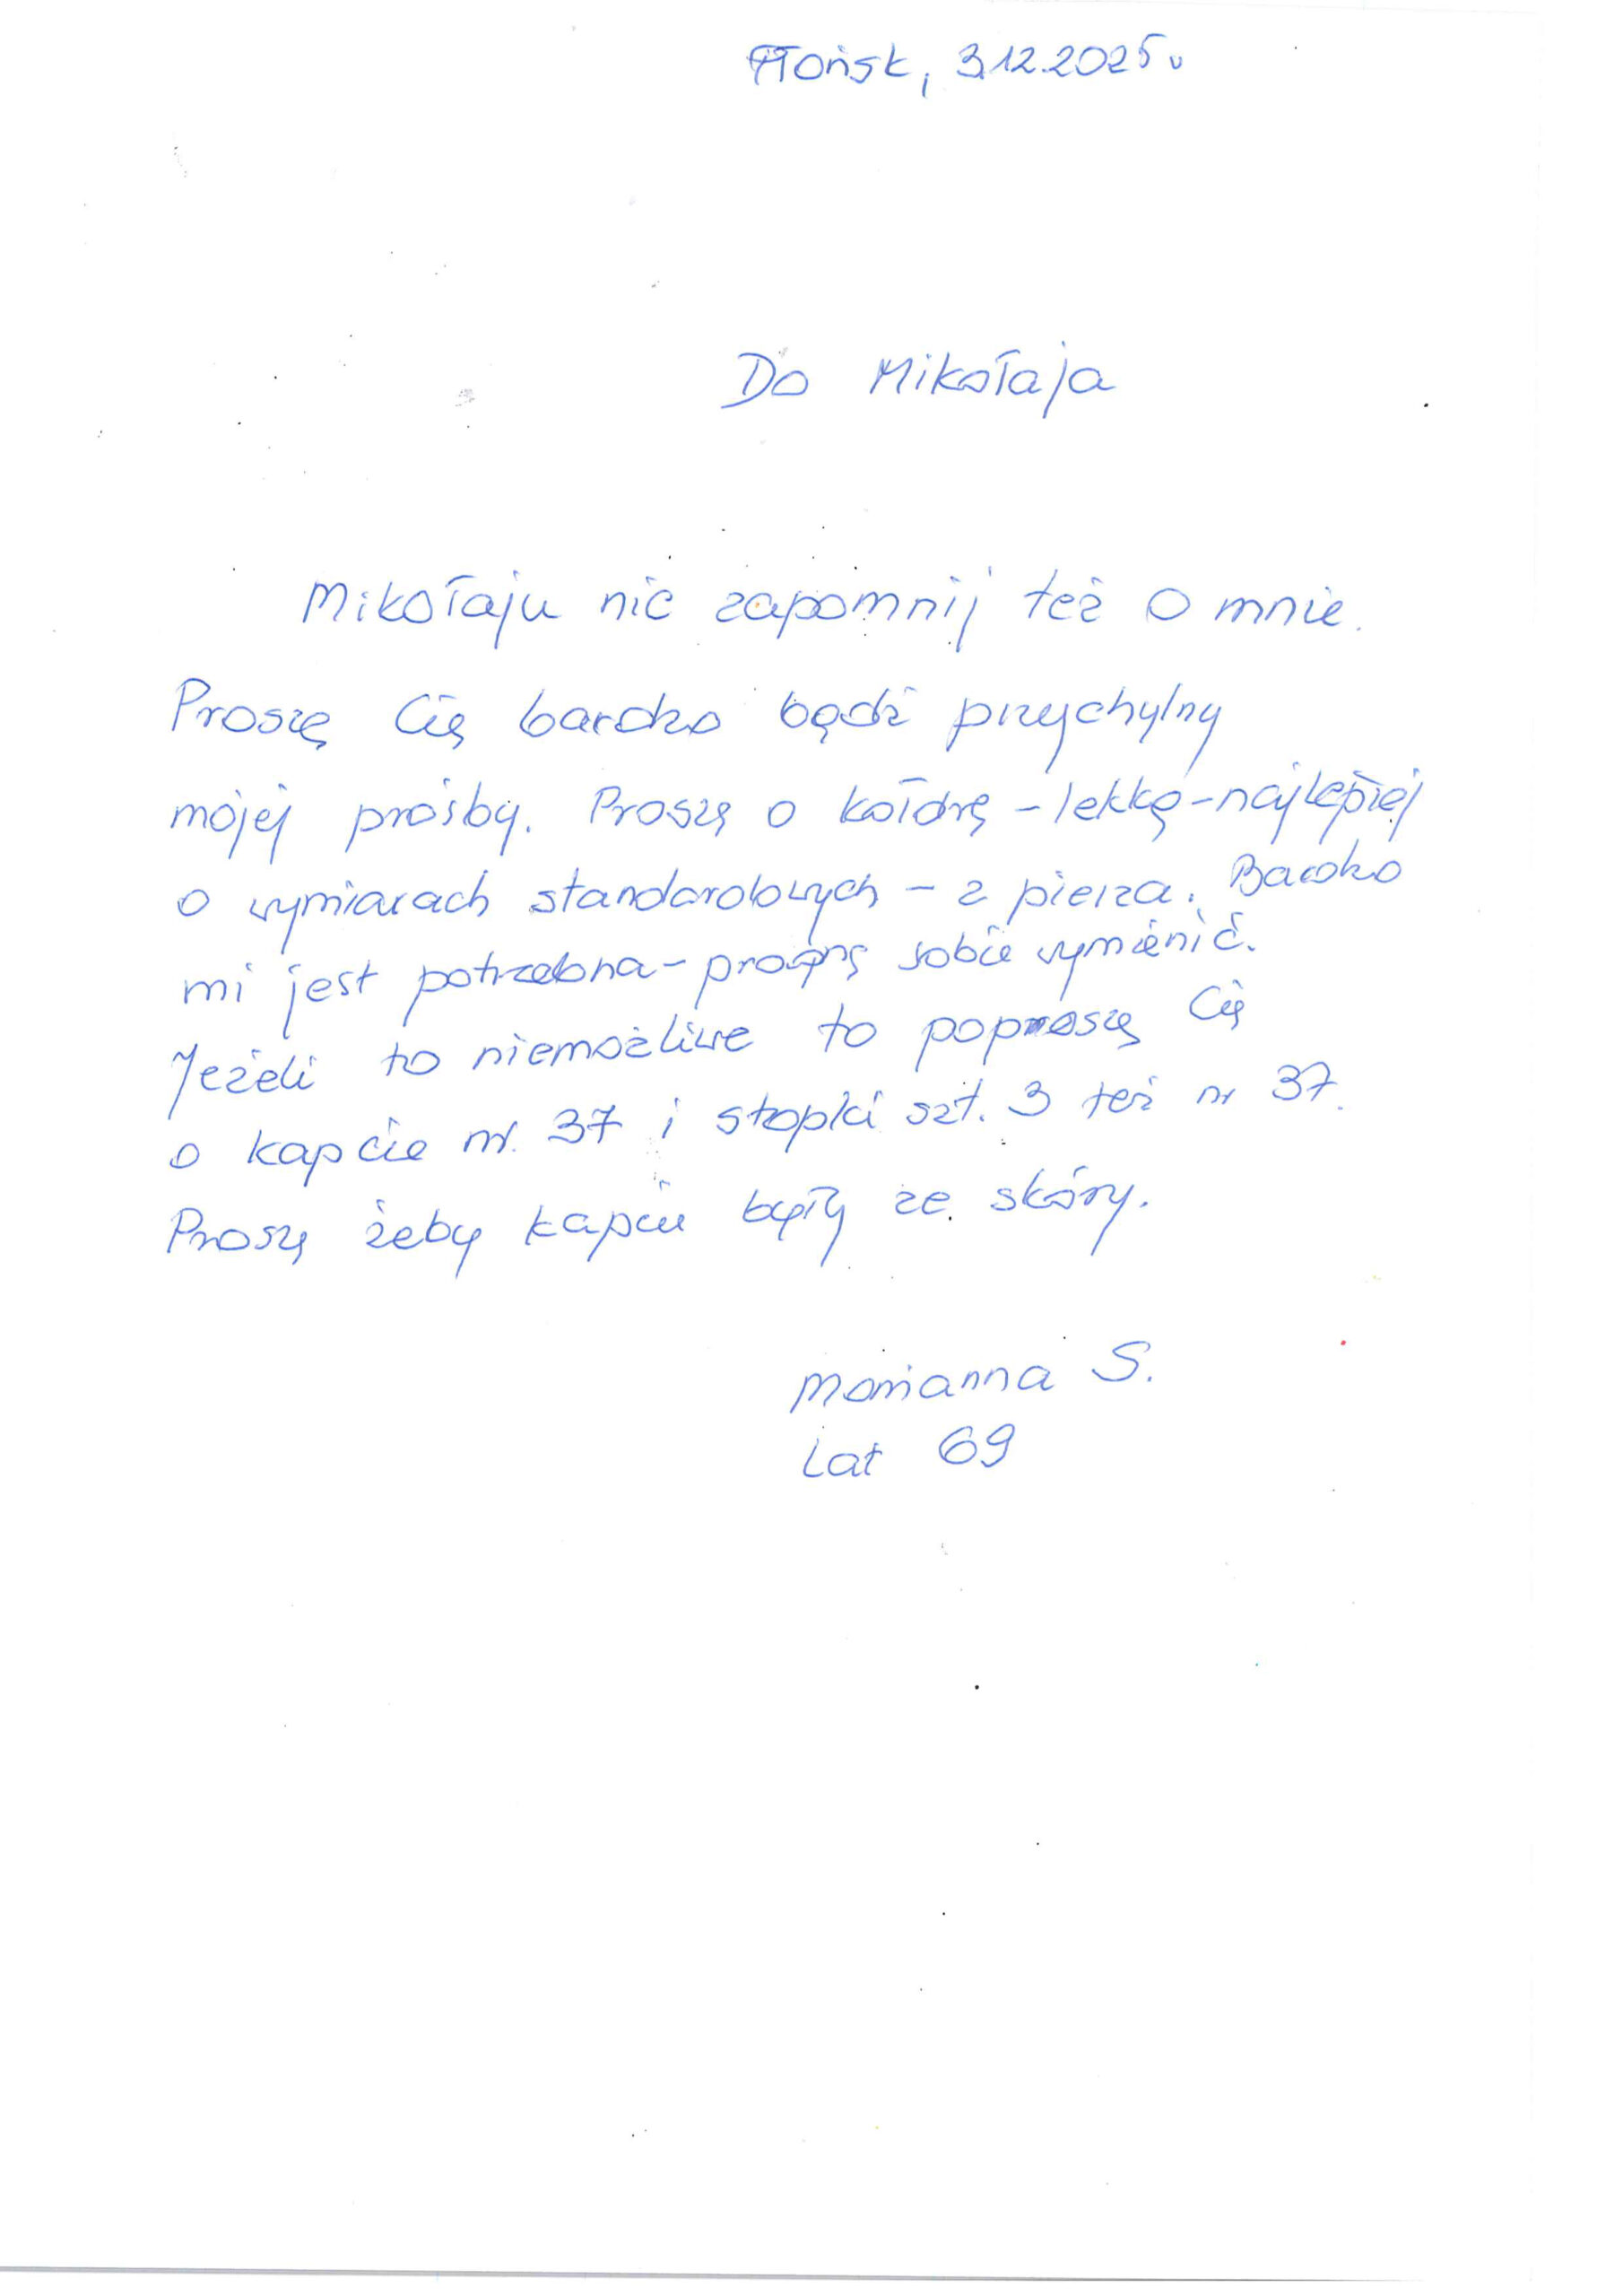 Płońsk, 3.12.2025r
Do Mikołaja
Mikołaju nie zapomnij też o mnie.
Proszę Cię bardzo bądź przychylny
mojej prośby. Proszę o kołdrę – lekką – najlepiej
o wymiarach standardowych – z pierza. Bardzo
mi jest potrzebna – pragnę sobie wymienić.
Jeżeli to niemożliwe to poproszę Cię
o kapcie nr. 37 i stopki szt. 3 też nr 37.
Proszę żeby kapcie były ze skóry.
Marianna S.
Lat 69